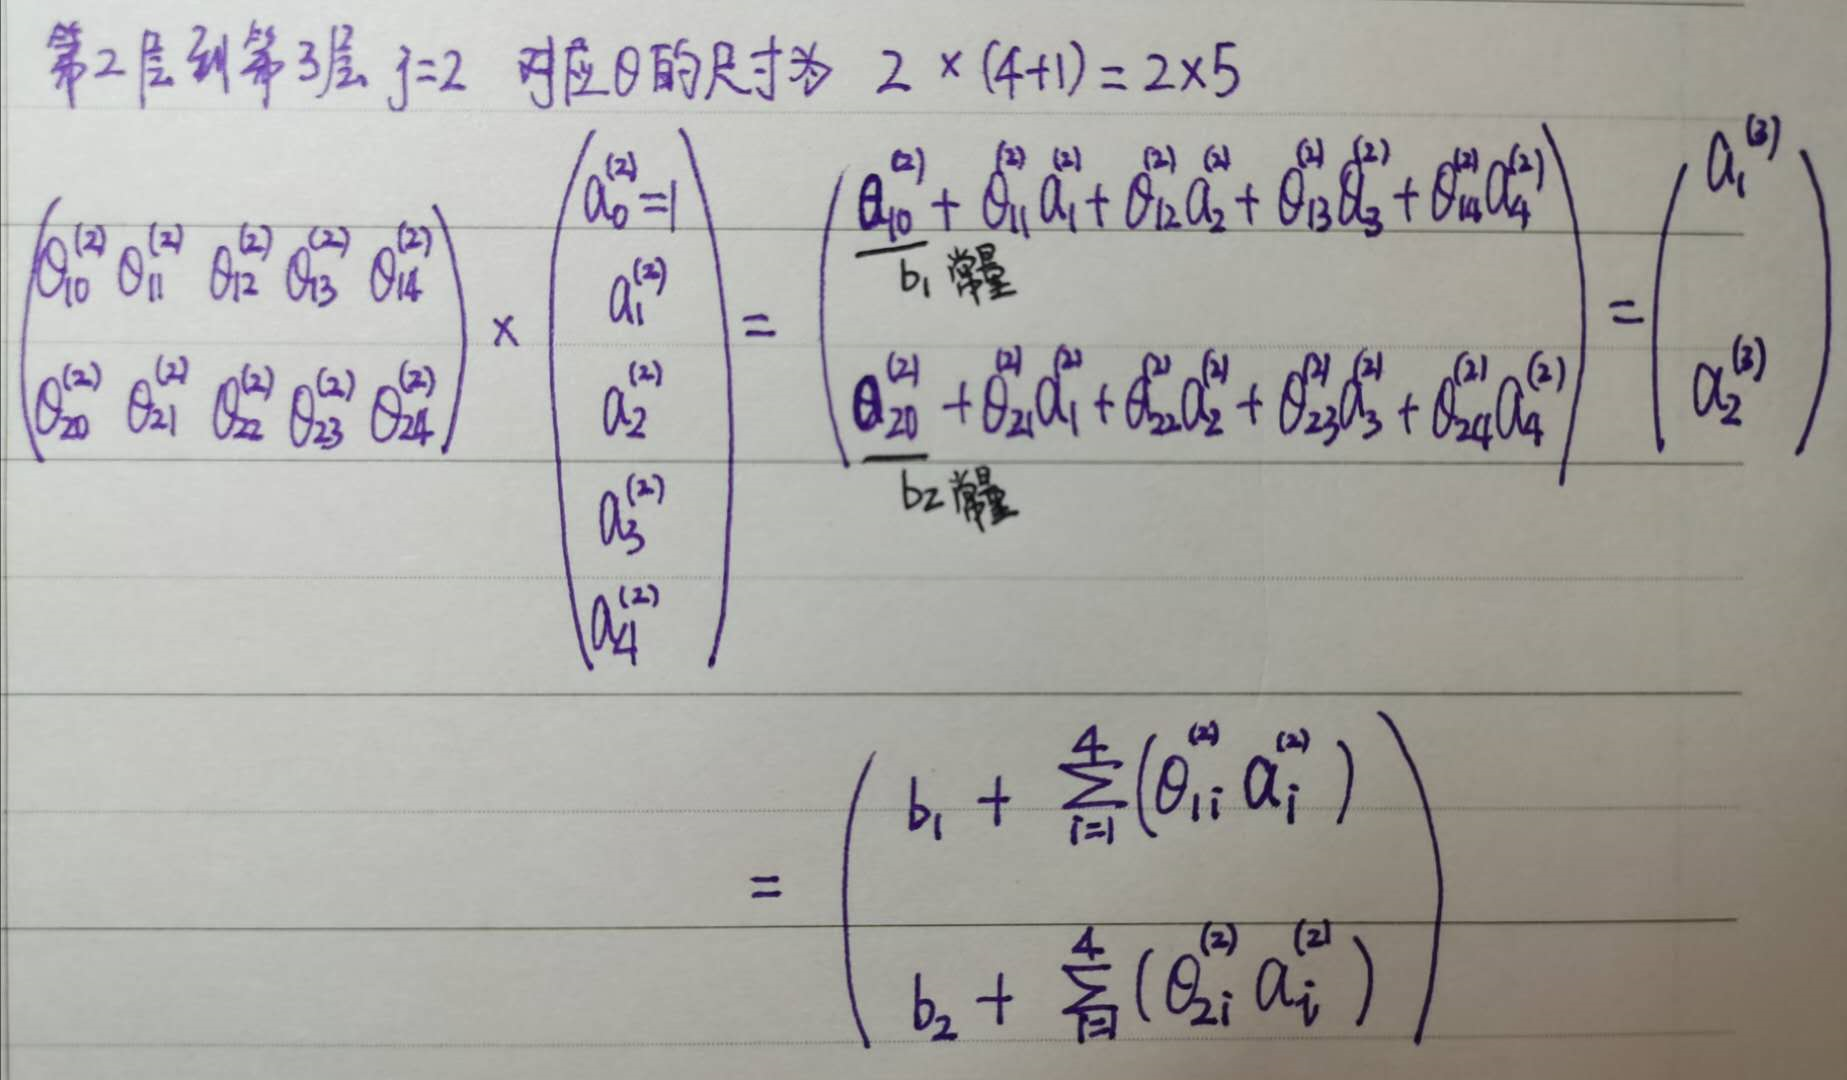 第2层到第3层 j=2 对应θ的尺寸为 2 × (4+1) = 2×5
( θ₁₀⁽²⁾ θ₁₁⁽²⁾ θ₁₂⁽²⁾ θ₁₃⁽²⁾ θ₁₄⁽²⁾
θ₂₀⁽²⁾ θ₂₁⁽²⁾ θ₂₂⁽²⁾ θ₂₃⁽²⁾ θ₂₄⁽²⁾ )
×
( a₀⁽²⁾=1
a₁⁽²⁾
a₂⁽²⁾
a₃⁽²⁾
a₄⁽²⁾ )
=
( θ₁₀⁽²⁾ + θ₁₁⁽²⁾a₁⁽²⁾ + θ₁₂⁽²⁾a₂⁽²⁾ + θ₁₃⁽²⁾a₃⁽²⁾ + θ₁₄⁽²⁾a₄⁽²⁾
b₁ 常量
θ₂₀⁽²⁾ + θ₂₁⁽²⁾a₁⁽²⁾ + θ₂₂⁽²⁾a₂⁽²⁾ + θ₂₃⁽²⁾a₃⁽²⁾ + θ₂₄⁽²⁾a₄⁽²⁾ )
b₂ 常量
=
( a₁⁽³⁾
a₂⁽³⁾ )
=
( b₁ + ∑ᵢ₌₁⁴ (θ₁ᵢ⁽²⁾ aᵢ⁽²⁾)
b₂ + ∑ᵢ₌₁⁴ (θ₂ᵢ⁽²⁾ aᵢ⁽²⁾) )